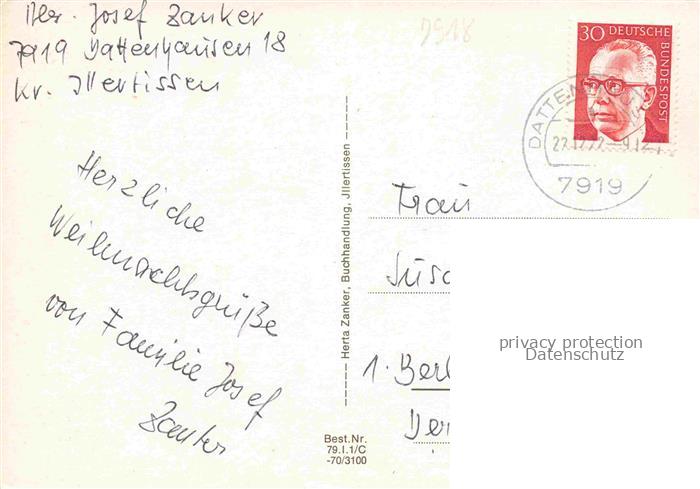 Josef Zanker
7919 Dattenhausen 18
Kr. Illertissen
7918
30 DEUTSCHE BUNDESPOST
DATTEN
22.12.72-9.12
7919
Herzliche
Weihnachtsgrüße
von Familie Josef
Zanker
Herta Zanker, Buchhandlung, Jllertissen
Best.Nr.
79.I.1/C
-70/3100
Frau
Susa
1 Berl
Der
privacy protection
Datenschutz